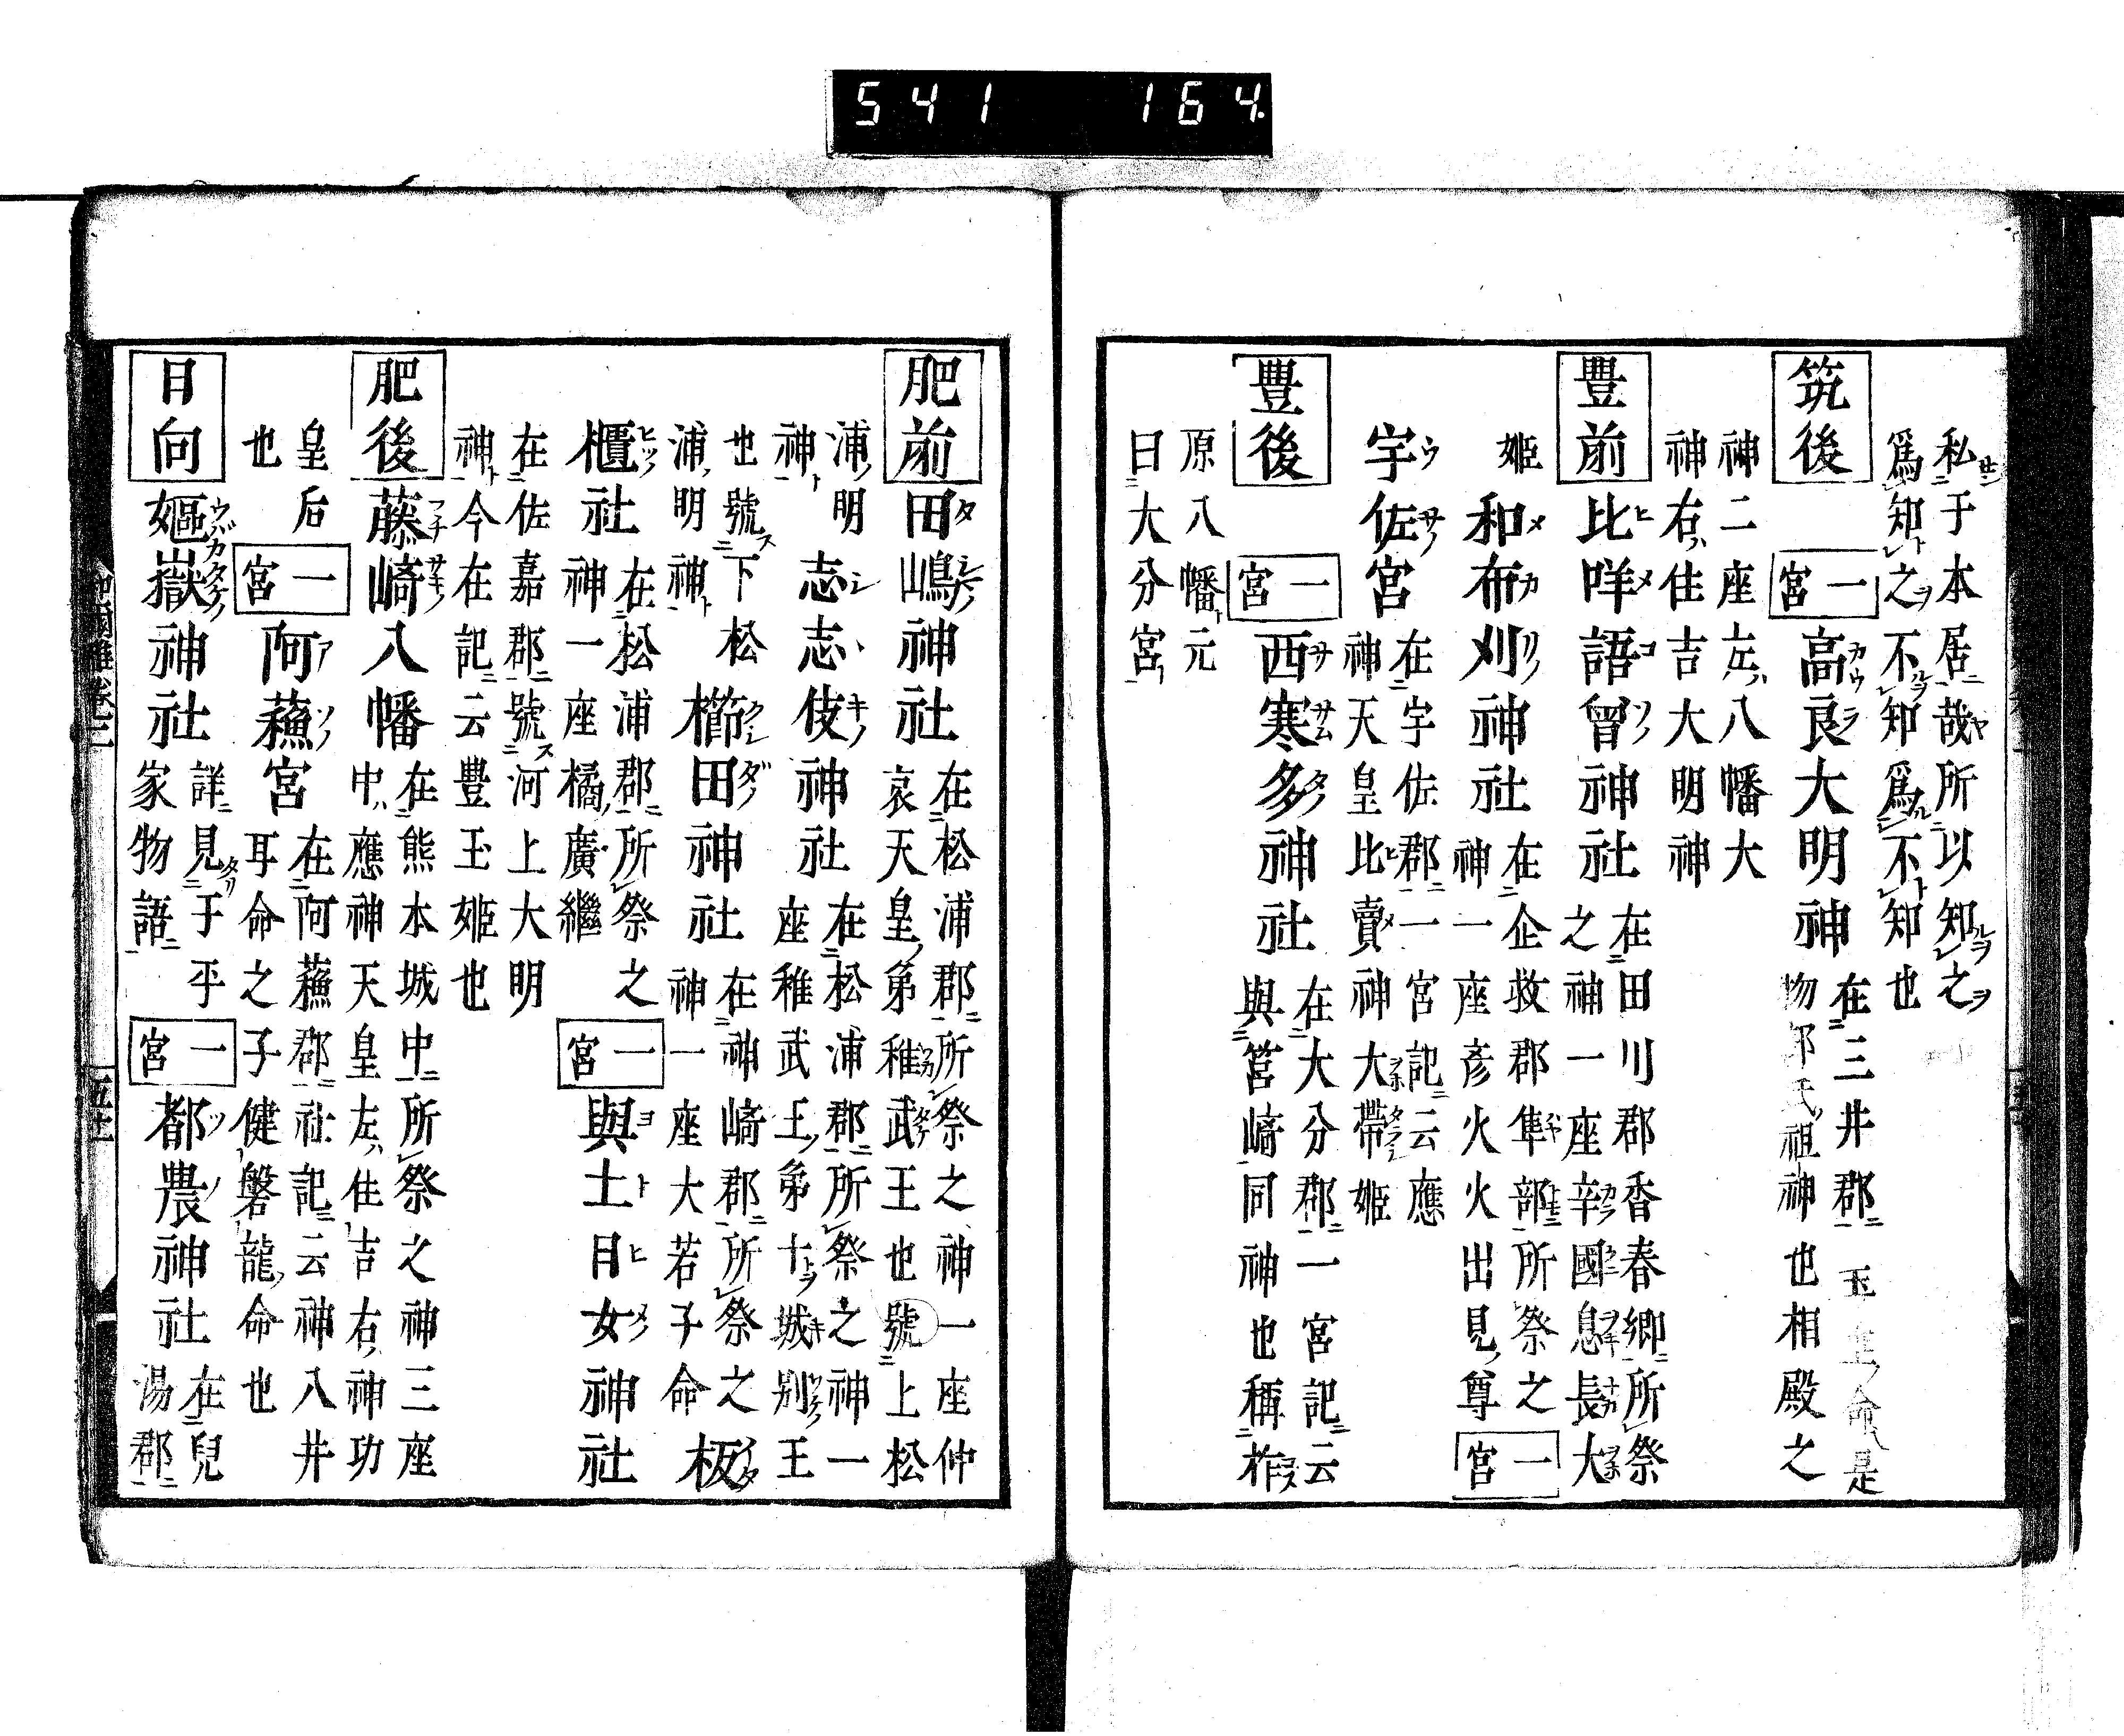 541 164
私于本居哉所以知之
爲知之不知爲不知也
筑後 一宮 高良大明神 在三井郡 玉垂命是
物部氏祖神也相殿之
神二座左八幡大
神右住吉大明神
豊前 比咩語曾神社 在田川郡香春郷所祭
之神一座辛國息長大
姫 和布刈神社 在企救郡隼部所祭之
神一座彦火火出見尊 一宮
宇佐宮 在宇佐郡一宮記云應
神天皇比賣神大帶姫
豊後 一宮 西寒多神社 在大分郡一宮記云
與筥崎同神也稱柞
原八幡元
曰大分宮
肥前 田嶋神社 在松浦郡所祭之神一座仲
哀天皇弟稚武王也號上松
浦明
神 志志伎神社 在松浦郡所祭之神一
座稚武王弟十城別王
也號下松
浦明神 櫛田神社 在神崎郡所祭之
神一座大若子命 板
櫃社 在松浦郡所祭之
神一座橘廣繼 一宮 與土日女神社
在佐嘉郡號河上大明
神今在記云豊玉姫也
肥後 藤崎八幡 在熊本城中所祭之神三座
中應神天皇左住吉右神功
皇后
也 一宮 阿蘓宮 在阿蘓郡社記云神八井
耳命之子健磐龍命也
日向 嫗嶽神社 詳見于平
家物語 一宮 都農神社 在兒
湯郡
和爾雅卷二 五十一